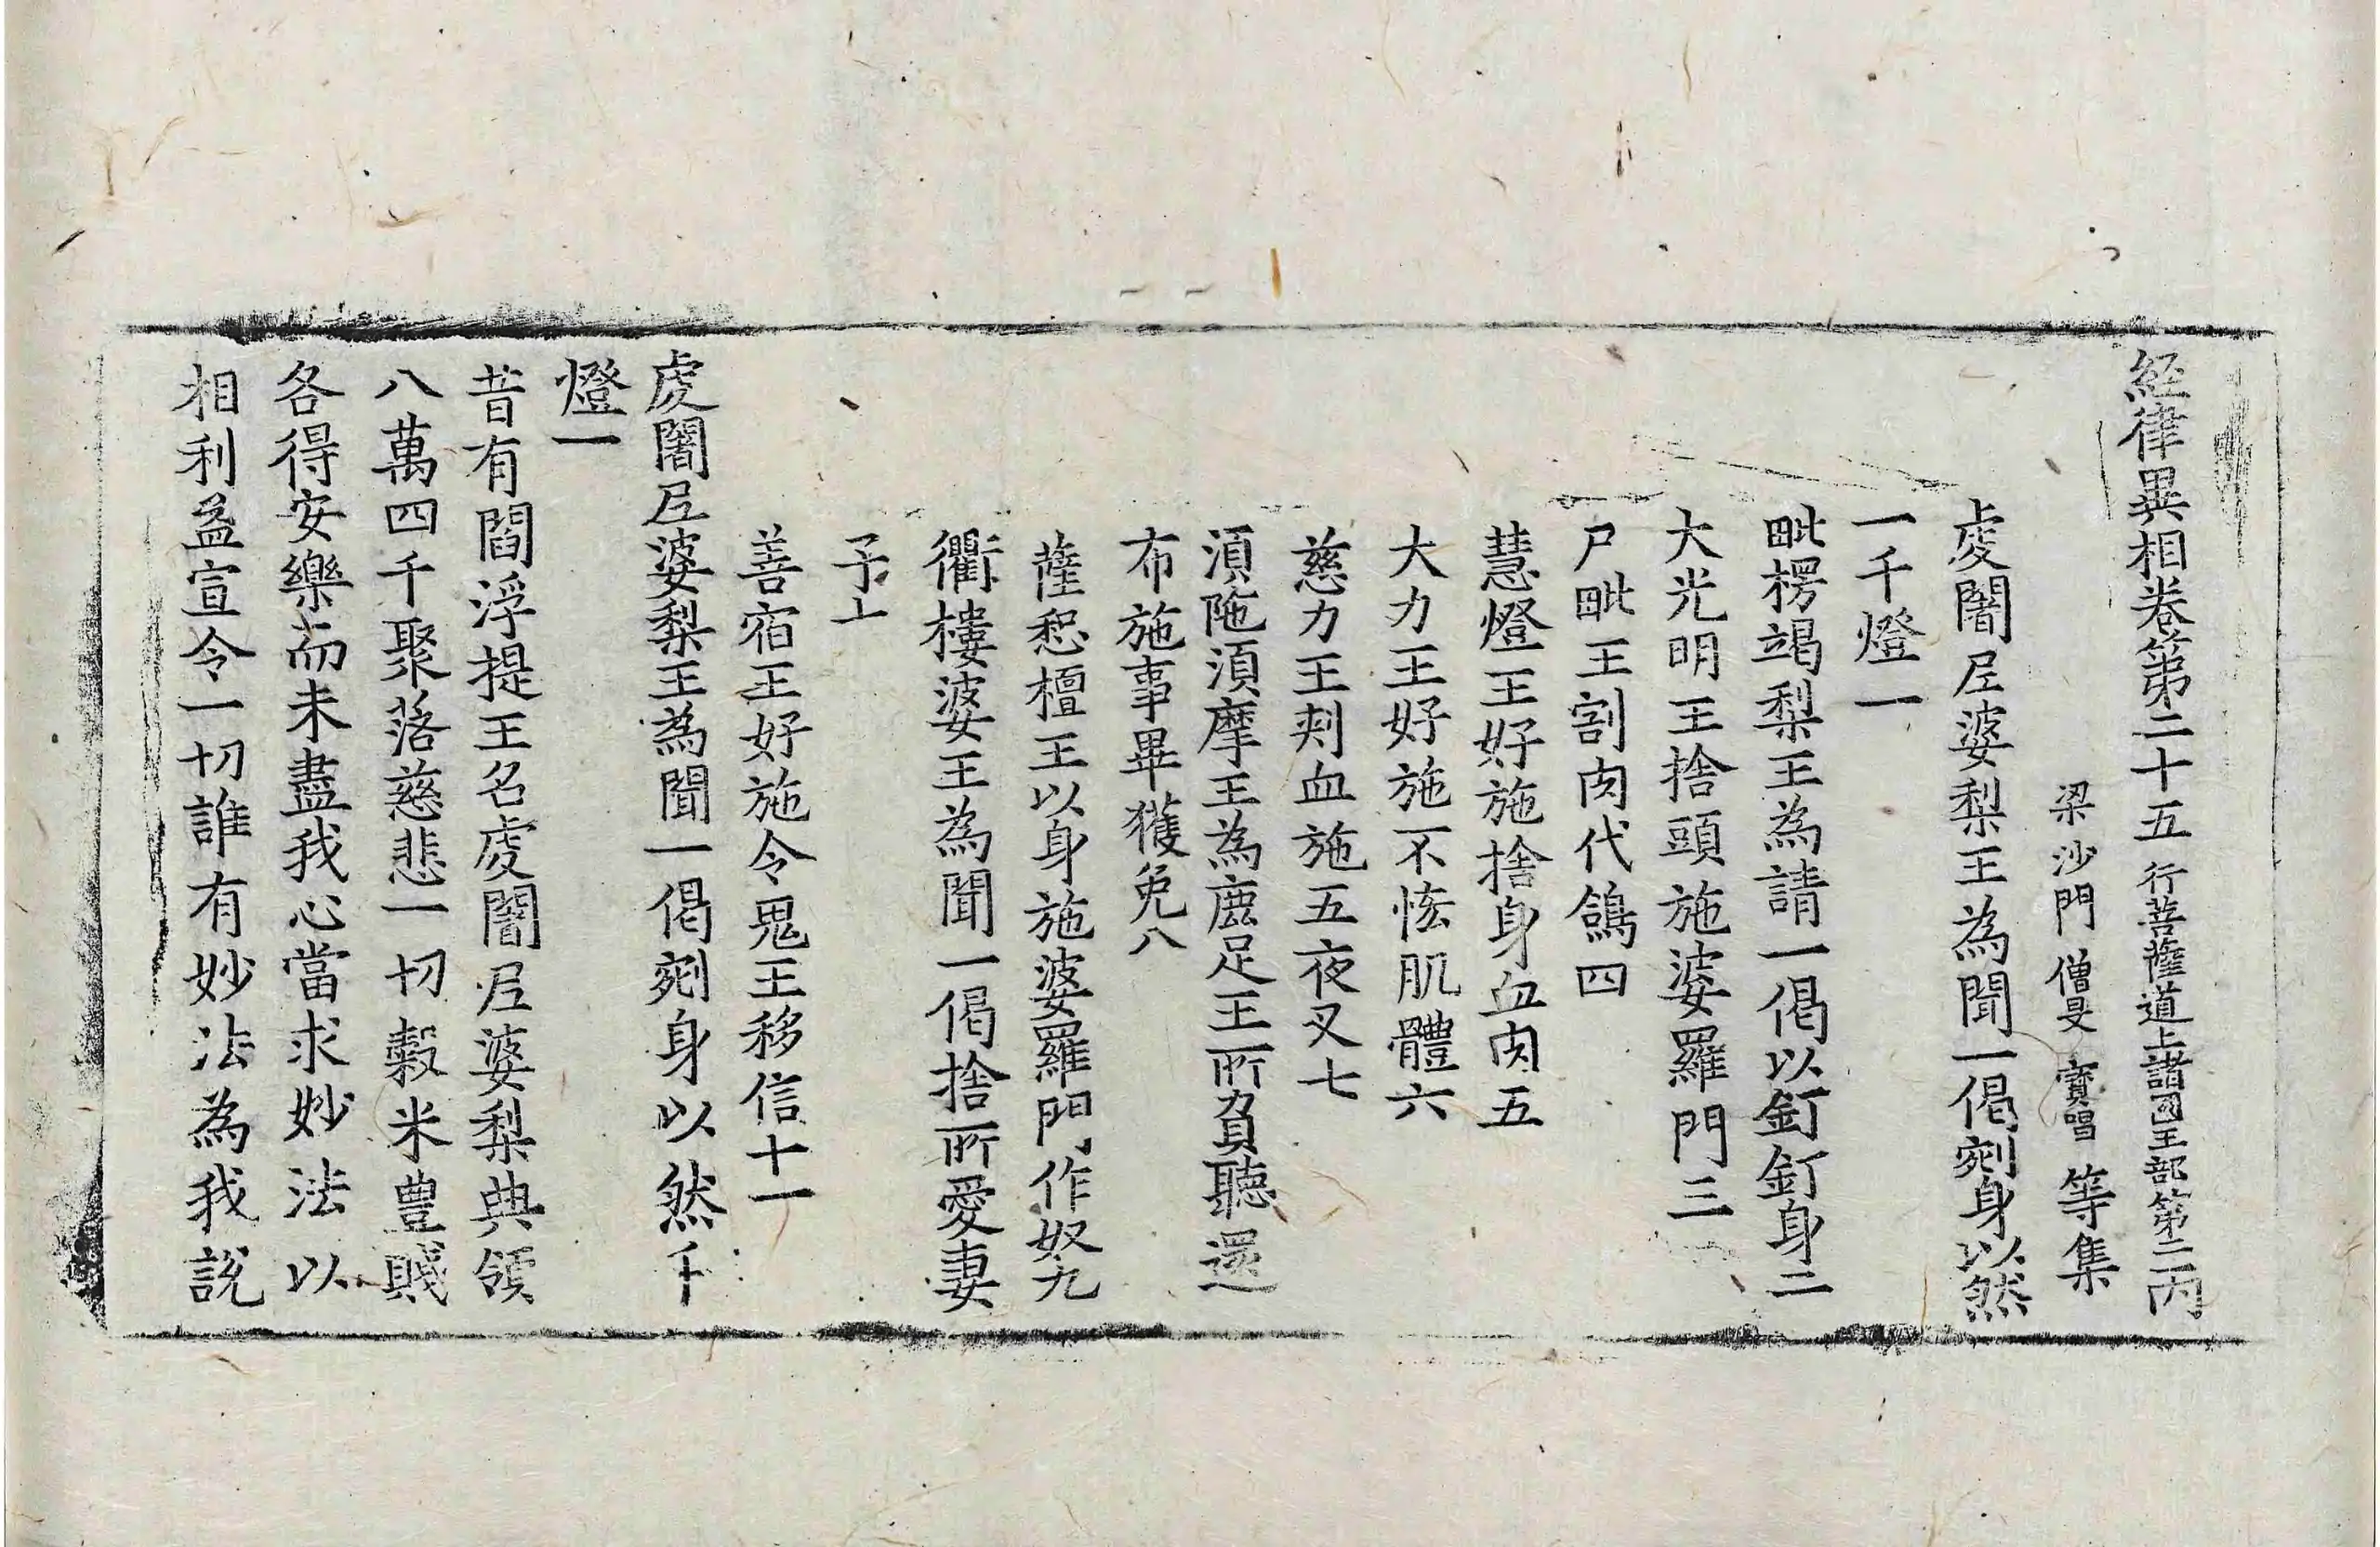 経律異相卷第二十五 行菩薩道上諸國王部第二 丙
梁沙門僧旻寶唱等集
虔闍尼婆梨王為聞一偈剜身以然
一千燈一
毗楞竭梨王為請一偈以釘釘身二
大光明王捨頭施婆羅門三
尸毗王割肉代鴿四
慧燈王好施捨身血肉五
大力王好施不恡肌體六
慈力王刾血施五夜叉七
湏陁湏摩王為鹿足王所負聽還
布施事畢獲免八
薩惒檀王以身施婆羅門作奴九
衢樓婆王為聞一偈捨所愛妻
子十
善宿王好施令鬼王移信十一
虔闍尼婆梨王為聞一偈剜身以然千
燈一
昔有閻浮提王名虔闍尼婆梨典領
八萬四千聚落慈悲一切穀米豊賤
各得安樂而未盡我心當求妙法以
相利益宣令一切誰有妙法為我説